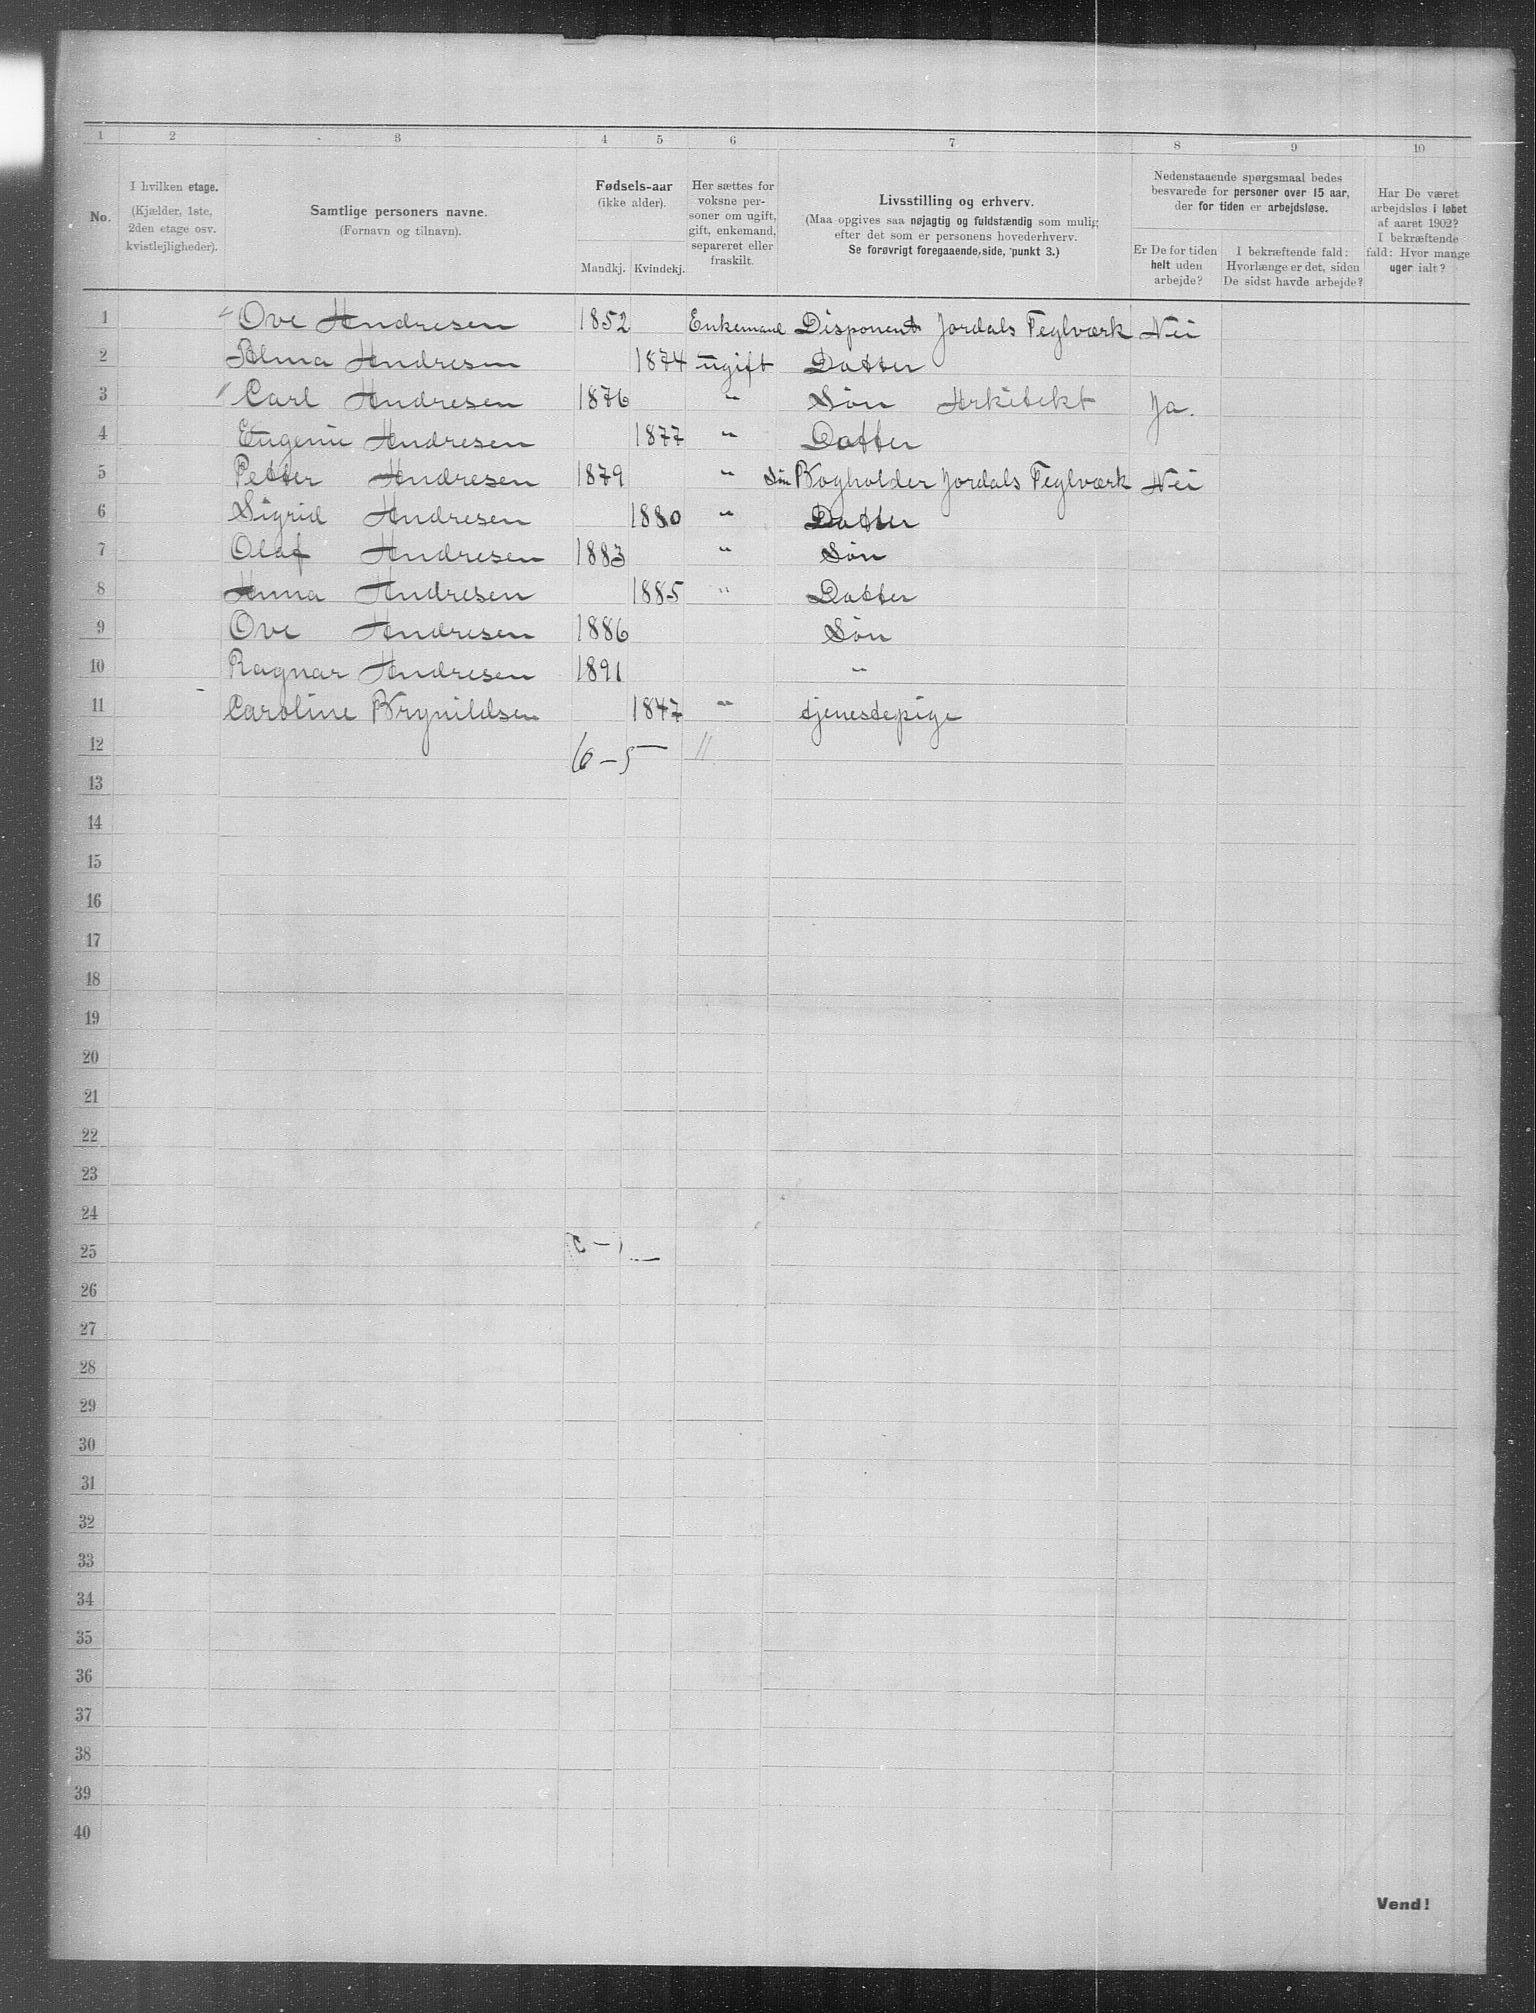 1 2 3 4 5 6 7 8 9 10
No.
I hvilken etage.
(Kjælder, 1ste,
2den etage osv.
kvistlejligheder).
Samtlige personers navne.
(Fornavn og tilnavn).
Fødsels-aar
(ikke alder).
Mandkj. Kvindekj.
Her sættes for
voksne per-
soner om ugift,
gift, enkemand,
separeret eller
fraskilt.
Livsstilling og erhverv.
(Maa opgives saa nøjagtig og fuldstændig som mulig
efter det som er personens hovederhverv.
Se forøvrigt foregaaende side, punkt 3.)
Nedenstaaende spørgsmaal bedes
besvarede for personer over 15 aar,
der for tiden er arbejdsløse.
Er De for tiden
helt uden
arbejde?
I bekræftende fald:
Hvorlænge er det, siden
De sidst havde arbejde?
Har De været
arbejdsløs i løbet
af aaret 1902?
I bekræftende
fald: Hvor mange
uger ialt?
1 Ove Andresen 1852 Enkemand Disponent Jordals Teglværk Nei
2 Alma Andresen 1874 ugift Datter
3 Carl Andresen 1876 " Søn Arkitekt Ja.
4 Eugenie Andresen 1877 " Datter
5 Petter Andresen 1879 " Søn Bogholder Jordals Teglværk Nei
6 Sigrid Andresen 1880 " Datter
7 Olaf Andresen 1883 " Søn
8 Anna Andresen 1885 " Datter
9 Ove Andresen 1886 Søn
10 Ragnar Andresen 1891 "
11 Caroline Brynildsen 1847 " tjenestepige
12 6-5 11
13
14
15
16
17
18
19
20
21
22
23
24
25
26
27
28
29
30
31
32
33
34
35
36
37
38
39
40
Vend!